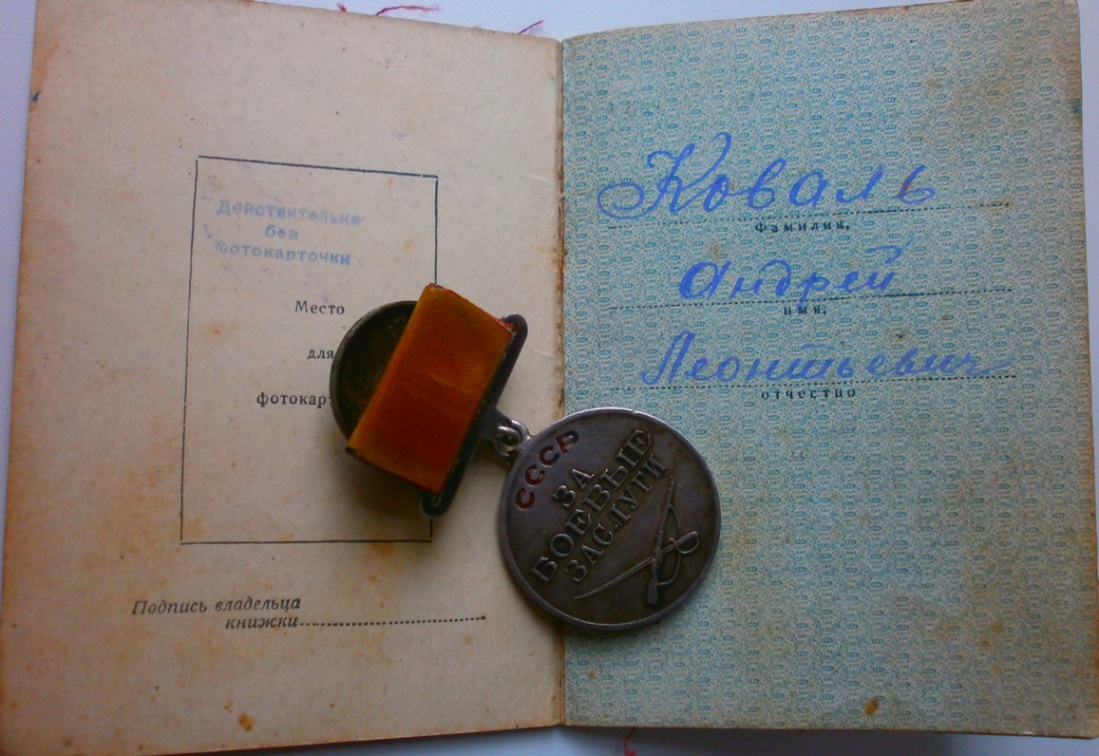 Действительно
без
фотокарточки
Место
для
фотокар
Подпись владельца
книжки
Коваль
Фамилия,
Андрей
имя,
Леонтьевич
отчество
СССР
ЗА
БОЕВЫЕ
ЗАСЛУГИ